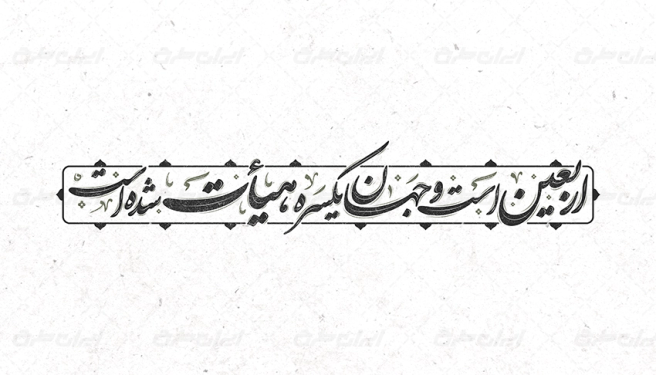 اربعین است و جهان یکسره هیأت شده است